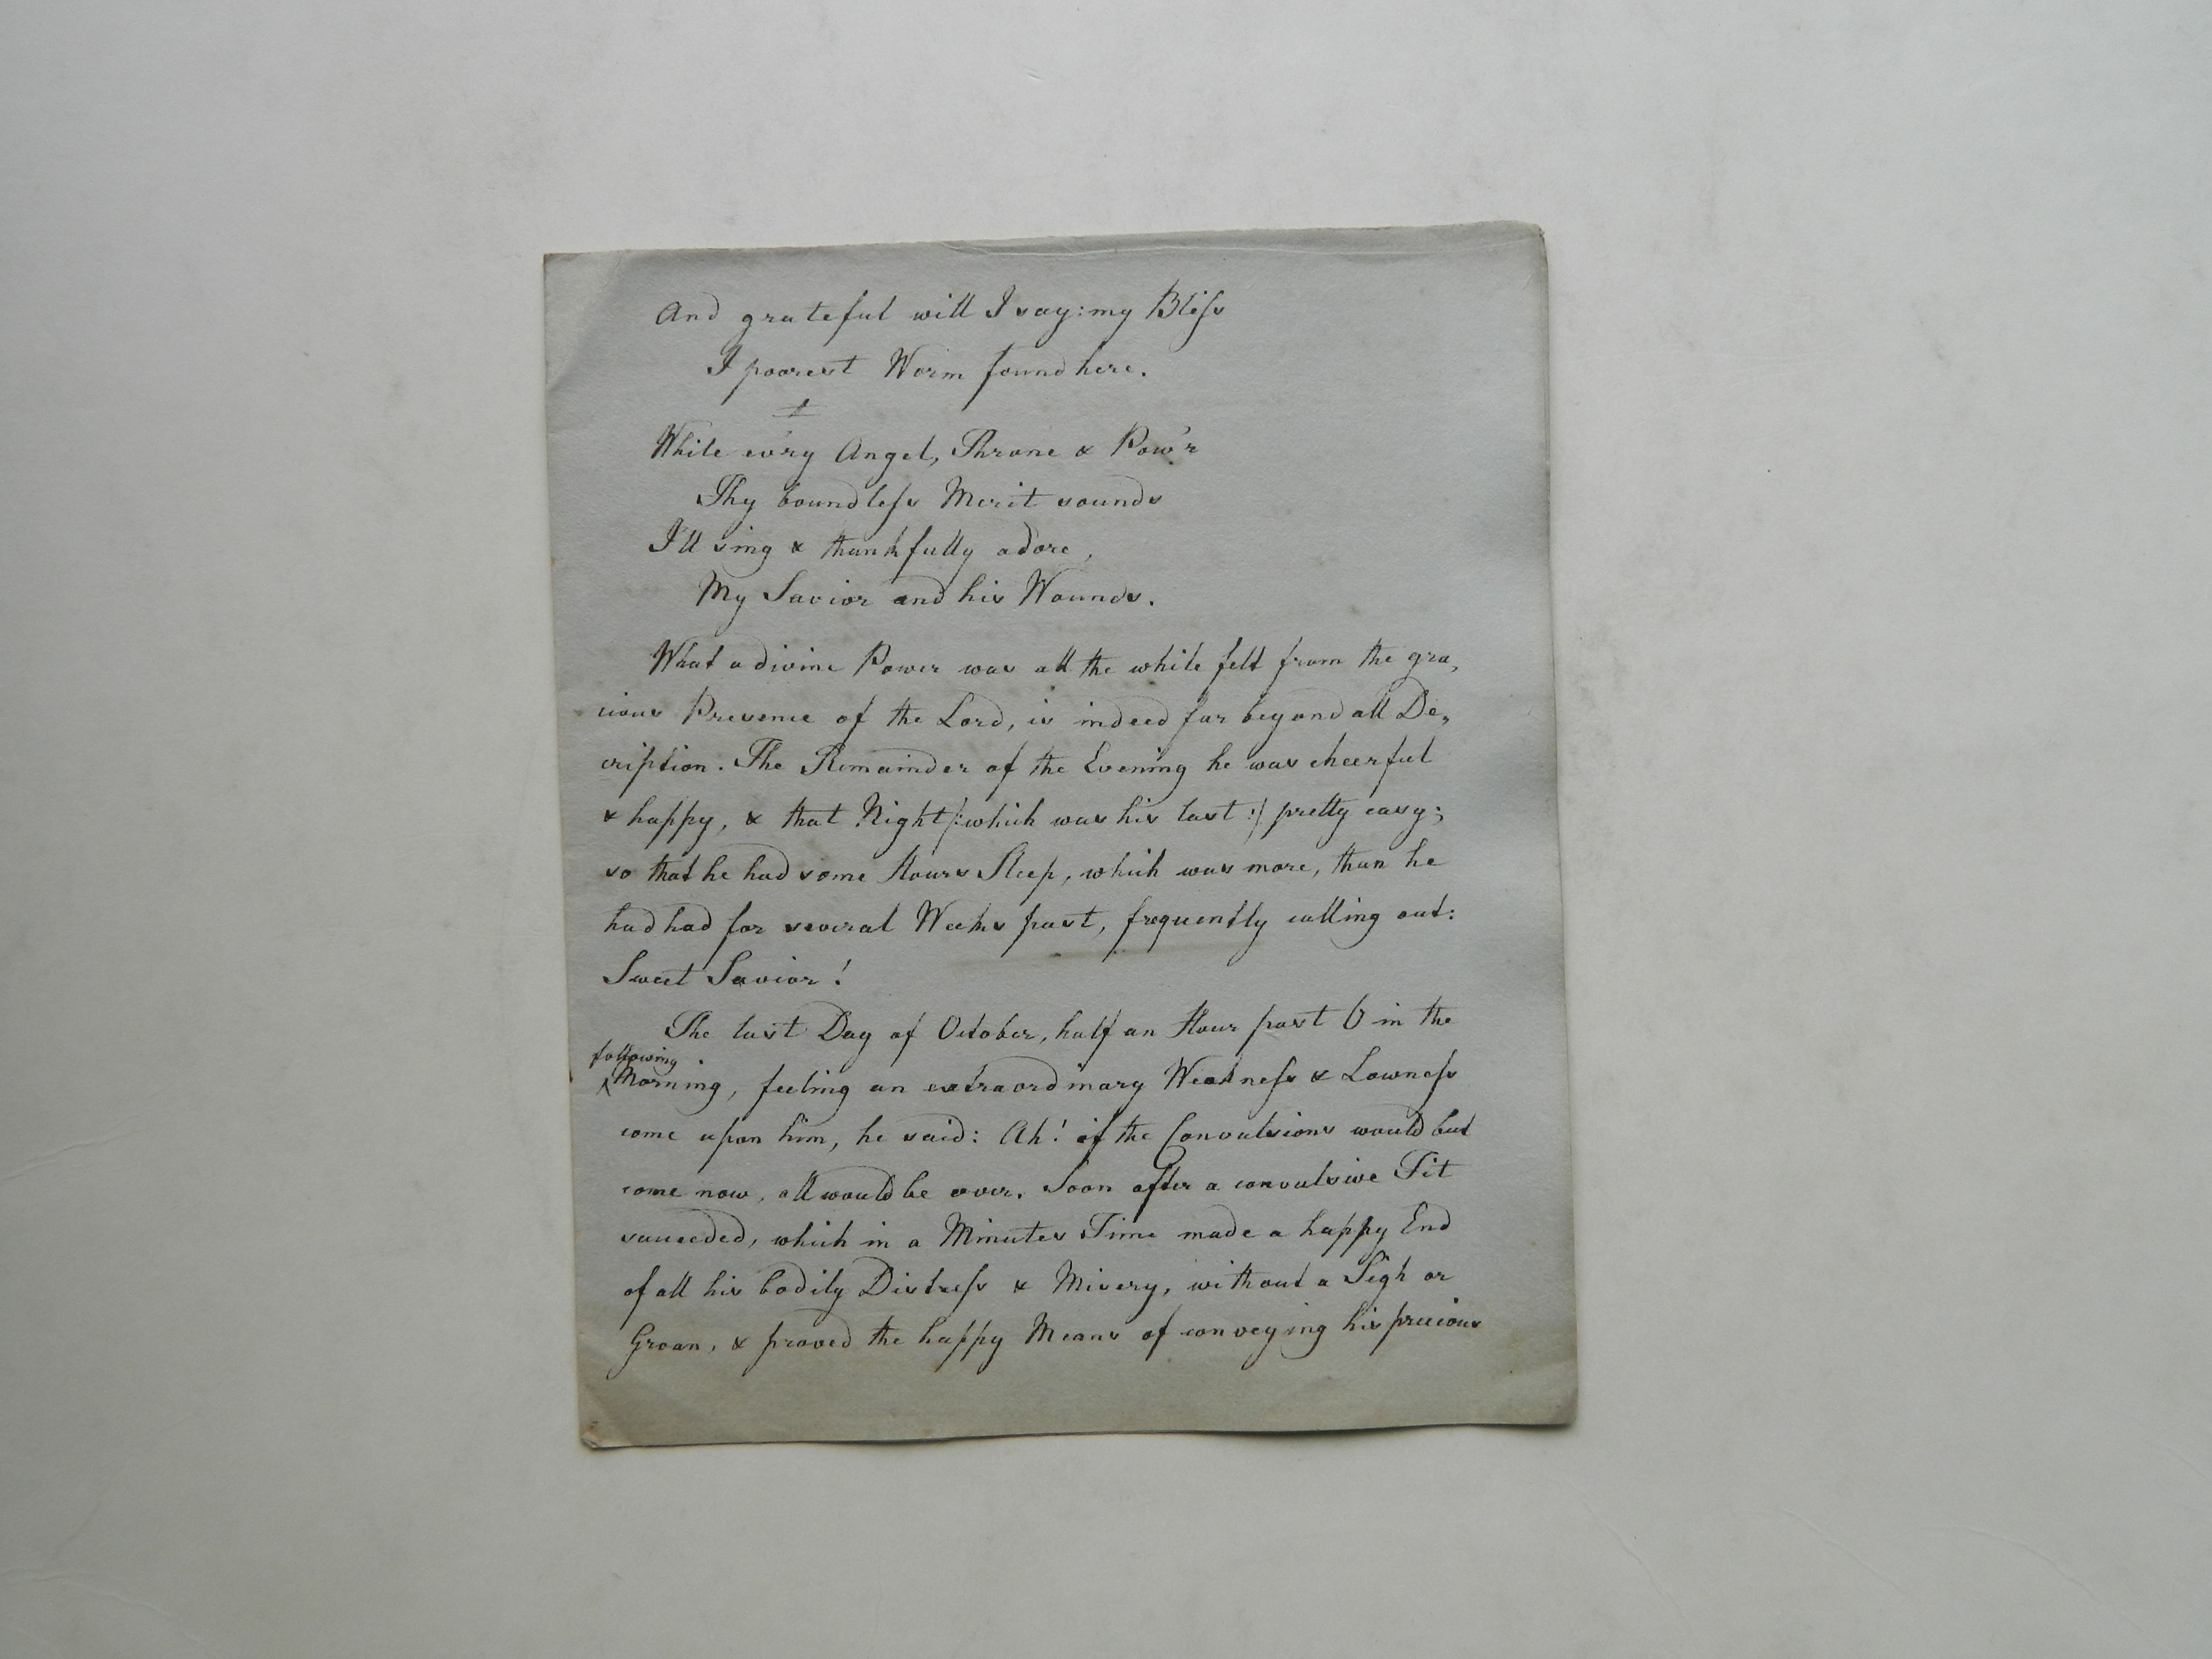 And grateful will I say: my Bliss
I poorest Worm found here.
While ev'ry Angel, Throne & Pow'r
Thy boundless Merit sounds
I'll sing & thankfully adore,
My Savior and his Wounds.
What a divine Power was all the while felt from the gra„
cious Presence of the Lord, is indeed far beyond all De„
cription. The Remainder of the Evening he was cheerful
& happy, & that Night /: which was his last :/ pretty easy;
so that he had some Hours Sleep, which was more, than he
had had for several Weeks past, frequently calling out:
Sweet Savior!
The last Day of October, half an Hour past 6 in the
following
Morning, feeling an extraordinary Weakness & Lowness
come upon him, he said: Ah! if the Convulsions would but
come now, all would be over. Soon after a convulsive Fit
succeeded, which in a Minutes Time made a happy End
of all his bodily Distress & Misery, without a Sigh or
Groan, & proved the happy Means of conveying his precious